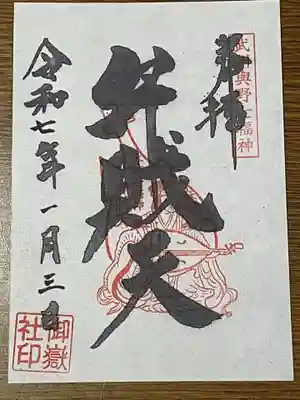 奉拝
武州與野七福神
弁財天
令和七年一月三日
御嶽
社印